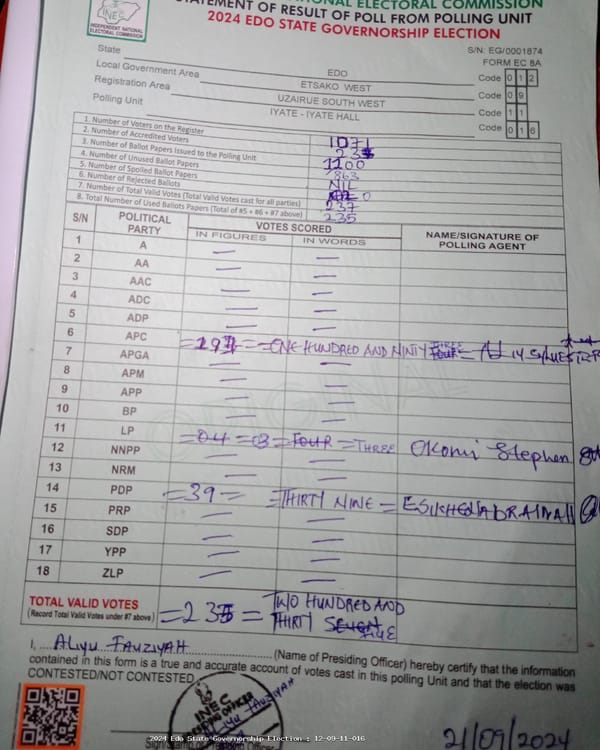 INEC
INDEPENDENT NATIONAL
ELECTORAL COMMISSION
NATIONAL ELECTORAL COMMISSION
STATEMENT OF RESULT OF POLL FROM POLLING UNIT
2024 EDO STATE GOVERNORSHIP ELECTION
S/N: EG/0001674
FORM EC 8A
State EDO Code 0 1 2
Local Government Area ETSAKO WEST Code 0 9
Registration Area UZAIRUE SOUTH WEST Code 1 1
Polling Unit IYATE - IYATE HALL Code 0 1 6
1. Number of Voters on the Register 1071
2. Number of Accredited Voters
3. Number of Ballot Papers Issued to the Polling Unit 1100
4. Number of Unused Ballot Papers 863
5. Number of Spoiled Ballot Papers NIL
6. Number of Rejected Ballots 0
7. Number of Total Valid Votes (Total Valid Votes cast for all parties) 237
8. Total Number of Used Ballots Papers (Total of #5 + #6 + #7 above) 235
S/N POLITICAL PARTY VOTES SCORED NAME/SIGNATURE OF POLLING AGENT
IN FIGURES IN WORDS
1 A — —
2 AA — —
3 AAC — —
4 ADC — —
5 ADP — —
6 APC =193= =ONE HUNDRED AND NINTY THREE FOUR=
7 APGA — —
8 APM — —
9 APP — —
10 BP — —
11 LP =04=03 =FOUR=THREE Okomi Stephen
12 NNPP — —
13 NRM — —
14 PDP =39= =THIRTY NINE=
15 PRP — —
16 SDP — —
17 YPP — —
18 ZLP — —
TOTAL VALID VOTES =235= TWO HUNDRED AND
(Record Total Valid Votes under #7 above) THIRTY SEVEN FIVE
I, ALIYU FAUZIYAH (Name of Presiding Officer) hereby certify that the information
contained in this form is a true and accurate account of votes cast in this polling Unit and that the election was
CONTESTED/NOT CONTESTED
INEC
ALIYU FAUZIYAH
21/09/2024
2024 Edo State Governorship Election : 12-09-11-016